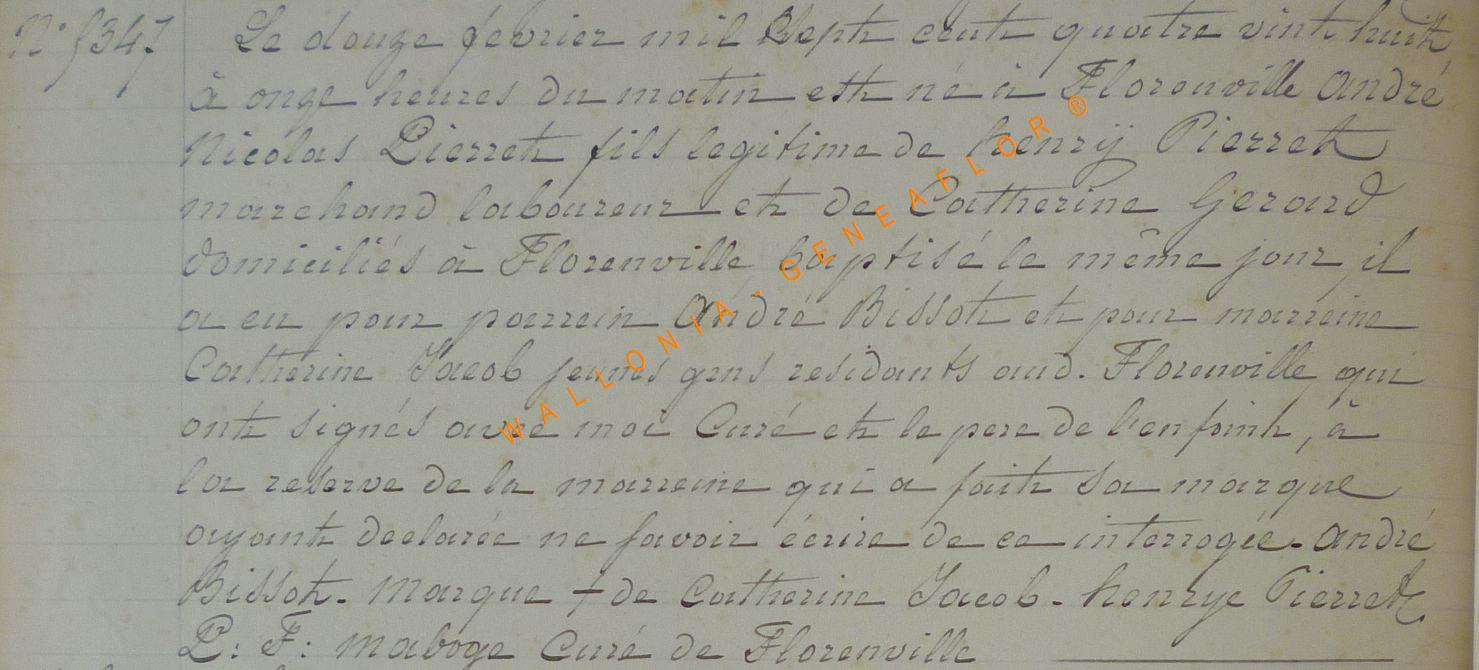 N° 5347 Le douze fevrier mil sept cent quatre vint huit
à onze heures du matin est né à Florenville André
Nicolas Pierret fils legitime de henrÿ Pierret
marchand laboureur et de Catherine Gerard
domiciliés à Florenville baptisé le même jour, il
a eu pour parrein André Bissot et pour marreine
Catherine Jacob jeunes gens residants aud. Florenville qui
ont signés avec moi Curé et le pere de l'enfant, à
la reserve de la marreine qui a fait sa marque
ayant declarée ne savoir écrire de ce interrogée. André
Bissot. Marque + de Catherine Jacob. henrye Pierret.
P: F: maboge Curé de Florenville
WALLONIA-GENEAFLOR®